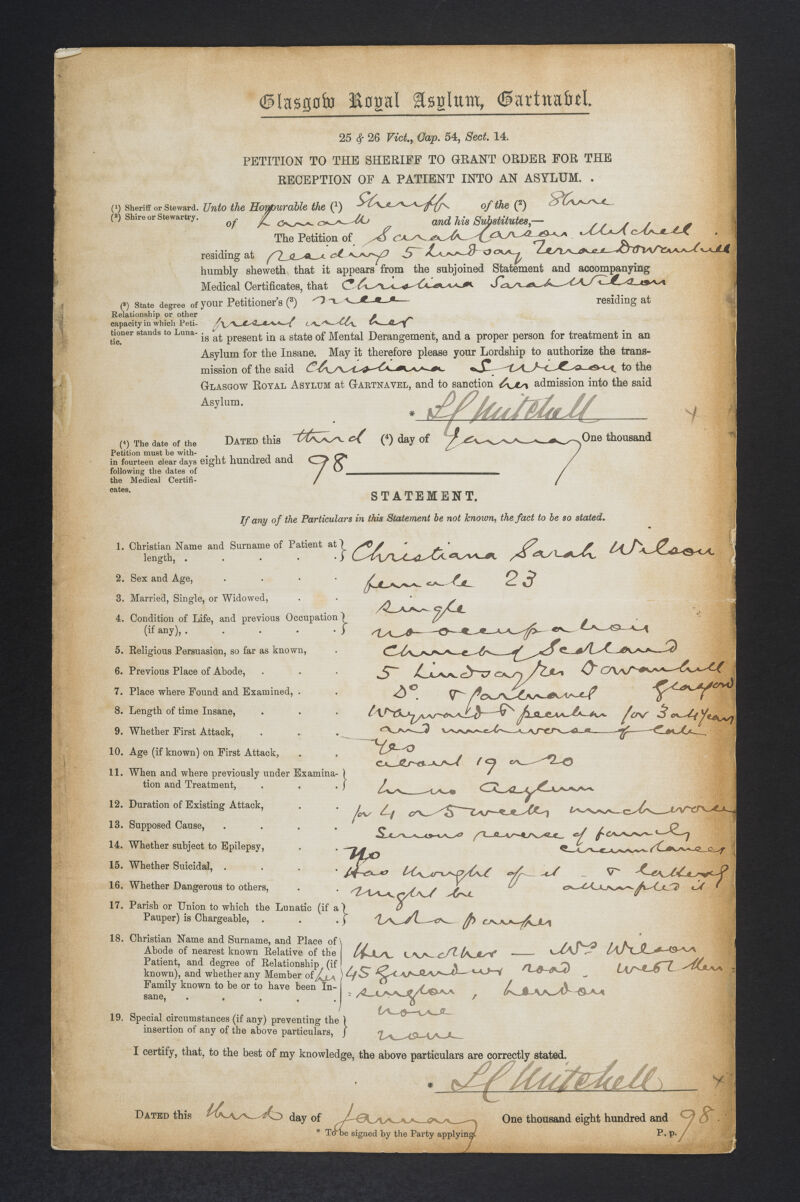 Glasgow Royal Asylum, Gartnavel.
25 & 26 Vict., Cap. 54, Sect. 14.
PETITION TO THE SHERIFF TO GRANT ORDER FOR THE
RECEPTION OF A PATIENT INTO AN ASYLUM. .
(1) Sheriff or Steward.
(2) Shire or Stewartry.
Unto the Honourable the (1) Sheriff of the (2) Shire
of Lanark and his Substitutes,—
The Petition of Sarah Carson Mitchell .
residing at residing 5 Lindsay Terrace Dowanhill
humbly sheweth that it appears from the subjoined Statement and accompanying
Medical Certificates, that Christiana Sarah Wilson
(3) State degree of
Relationship or other
capacity in which Peti-
tioner stands to Luna-
tic.
your Petitioner's (3) niece residing at
present with her
is at present in a state of Mental Derangement, and a proper person for treatment in an
Asylum for the Insane. May it therefore please your Lordship to authorize the trans-
mission of the said Christiana S Wilson to the
GLASGOW ROYAL ASYLUM at GARTNAVEL, and to sanction her admission into the said
Asylum.
* S C Mitchell x
(4) The date of the
Petition must be with-
in fourteen clear days
following the dates of
the Medical Certifi-
cates.
DATED this third (4) day of January One thousand
eight hundred and 98
STATEMENT.
If any of the Particulars in this Statement be not known, the fact to be so stated.
1. Christian Name and Surname of Patient at
length, . . . . . . Christiana Sarah Wilson
2. Sex and Age, . . . . female 23
3. Married, Single, or Widowed, . . single
4. Condition of Life, and previous Occupation
(if any), . . . . . . no occupation
5. Religious Persuasion, so far as known, . Church of Scotland
6. Previous Place of Abode, . . . 5 Lindsay Ter Dowanhill
Glasgow
7. Place where Found and Examined, . . Do. & Gartnavel
8. Length of time Insane, . . . Wayward & peculiar for 3 or 4 years
and much worse of late
9. Whether First Attack, . . . Yes
10. Age (if known) on First Attack, . . about 19 or 20
11. When and where previously under Examina-
tion and Treatment, . . . In no Asylum
12. Duration of Existing Attack, . . for 4 or 5 weeks much worse
13. Supposed Cause, . . . . Serious reverse of family
circumstances
14. Whether subject to Epilepsy, . . No
15. Whether Suicidal, . . . . Has thought of it & latterly
attempted it
16. Whether Dangerous to others, . . Might be
17. Parish or Union to which the Lunatic (if a
Pauper) is Chargeable, . . . not a pauper
18. Christian Name and Surname, and Place of
Abode of nearest known Relative of the
Patient, and degree of Relationship (if
known), and whether any Member of her
Family known to be or to have been In-
sane, . . . . . .
Her mother — Mrs Wilson
45 Gwendwr road. West Ken=
=sington, London
none
19. Special circumstances (if any) preventing the
insertion of any of the above particulars,
none
I certify, that, to the best of my knowledge, the above particulars are correctly stated.
* S C Mitchell x
DATED this third day of January One thousand eight hundred and 98.
* To be signed by the Party applying. P. p.